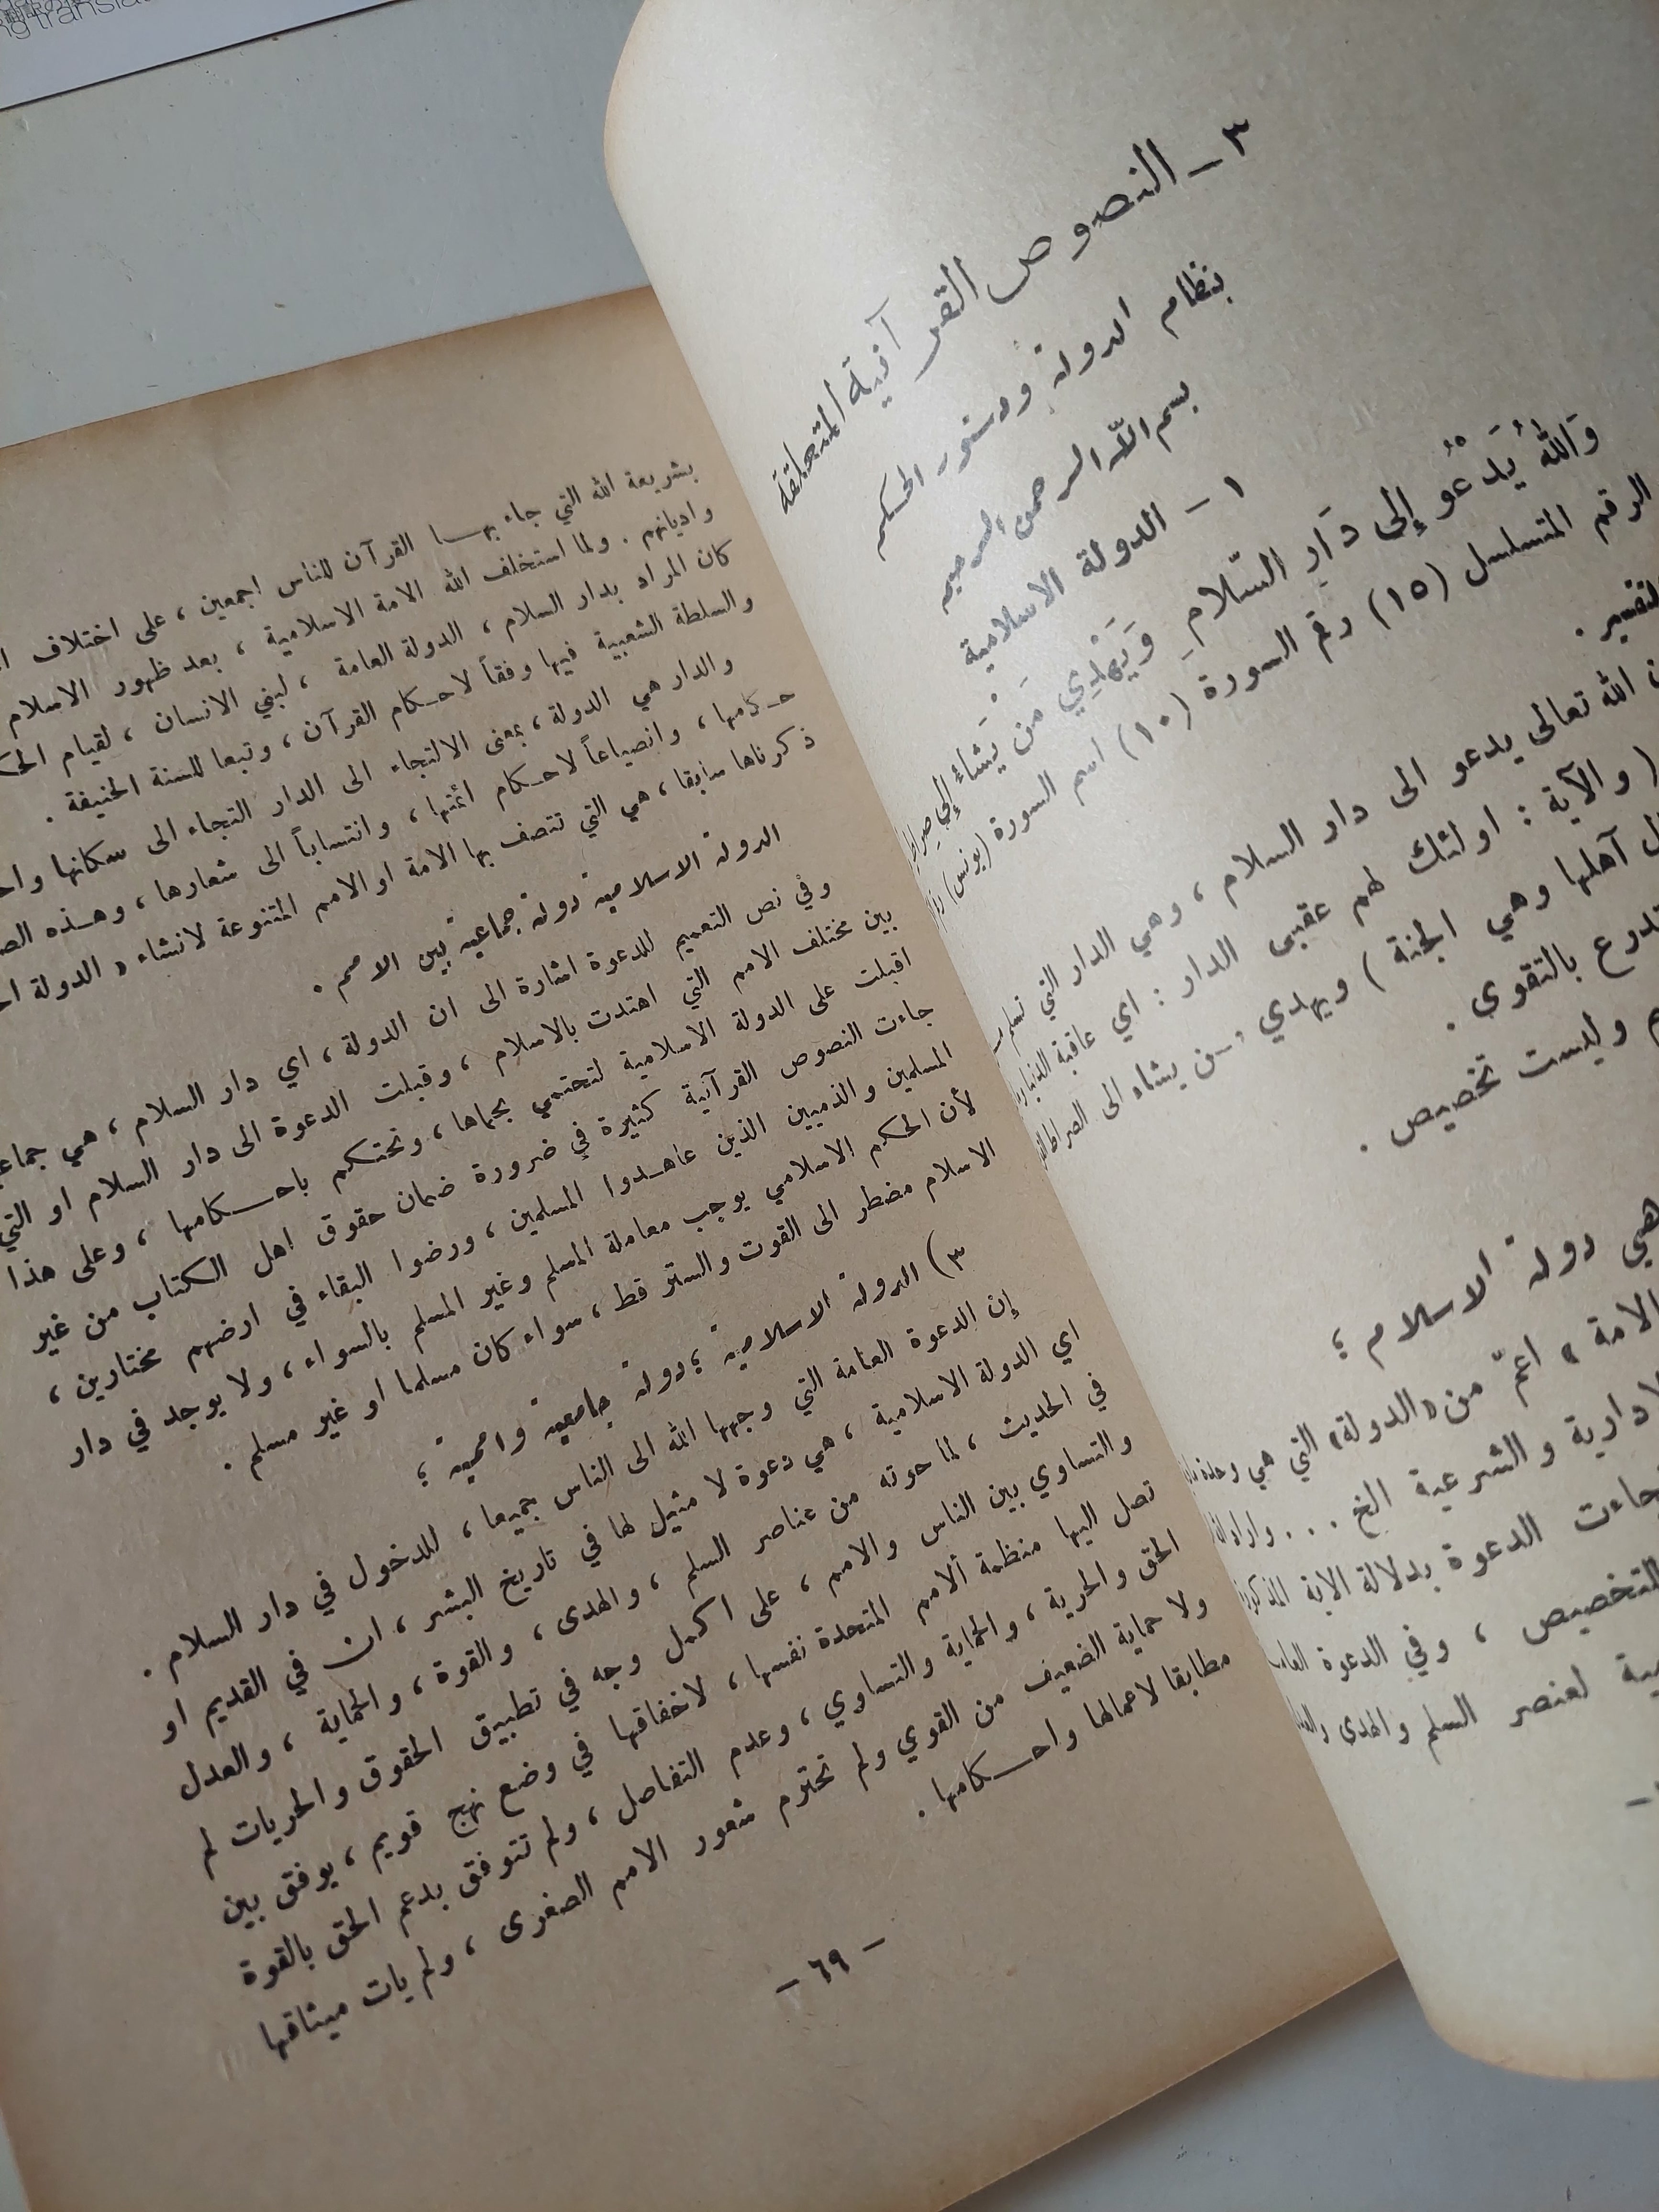 ng transla
٣ – النصوص القرآنية المتعلقة
بنظام الدولة ودستور الحكم
بسم الله الرحمن الرحيم
١ – الدولة الاسلامية
وَاللهُ يَدْعُو إلى دَارِ السّلامِ وَيَهْدِي مَنْ يَشَاءُ إلى صراط
الرقم المتسلسل (١٥) رقم السورة (١٠) اسم السورة (يونس)
التفسير .
الله تعالى يدعو الى دار السلام ، وهي الدار التي
( والآية : اولئك لهم عقبى الدار : اي عاقبة
آهلها وهي الجنة ) ويهدي من يشاء الى الصراط
بالتقوى .
وليست تخصيص .
هي دولة الاسلام ؛
الامة » اعمّ من «الدولة» التي هي وحدة
والشرعية الخ . . .
جاءت الدعوة بدلالة الاية
التخصيص ، وفي الدعوة
لعنصر السلم والهدى
بشريعة الله التي جاء بهـا القرآن للناس اجمعين ، على اختلاف
واديانهم . ولما استخلف الله الامة الاسلامية ، بعد ظهور الاسلام
كان المراد بدار السلام ، الدولة العامة ، لبني الانسان ، لقيام
والسلطة الشعبية فيها وفقاً لاحـكام القرآن ، وتبعا للسنة الحنيفة .
والدار هي الدولة ، بمعنى الالتجاء الى الدار التجاء الى سكانها
حـكامها ، وانصياعاً لاحـكام ائمتها ، وانتساباً الى شعارها ، وهـذه
ذكرناها سابقا ، هي التي تتصف بها الامة او الامم المتنوعة لانشاء « الدولة
الدولة الاسلامية دولة جماعية بين الامم .
وفي نص التعميم للدعوة اشارة الى ان الدولة ، اي دار السلام ، هي
بين مختلف الامم التي اهتدت بالاسلام ، وقبلت الدعوة الى دار السلام او التي
اقبلت على الدولة الاسلامية لتحتمي بحماها ، وتحتـكم باحـكامها ، وعلى هذا
جاءت النصوص القرآنية كثيرة في ضرورة ضمان حقوق اهل الـكتاب من غير
المسلمين والذميين الذين عاهـدوا المسلمين ، ورضوا البقاء في ارضهم مختارين ،
لأن الحكم الاسلامي يوجب معاملة المسلم وغير المسلم بالسواء ، ولا يوجد في دار
الاسلام مضطر الى القوت والستر قط ، سواء كان مسلما او غير مسلم .
٣) الدولة الاسلامية ؛ دولة جامعية واممية ؛
إن الدعوة العامة التي وجهها الله الى الناس جميعا ، للدخول في دار السلام .
اي الدولة الاسلامية ، هي دعوة لا مثيل لها في تاريخ البشر ، ان في القديم او
في الحديث ، لما حوته من عناصر السلم ، والهدى ، والقوة ، والحماية ، والعدل
والتساوي بين الناس والامم ، على اكمل وجه في تطبيق الحقوق والحريات لم
تصل اليها منظمة الامم المتحدة نفسها ، لاخفاقها في وضع نهج قويم ، يوفق بين
الحق والحرية ، والحماية والتساوي ، وعدم التفاضل ، ولم تتوفق بدعم الحق بالقوة
ولا حماية الضعيف من القوي ولم تحترم شعور الامم الصغرى ، ولم يات ميثاقها
مطابقا لاعمالها واحـكامها .
– ٦٩ –